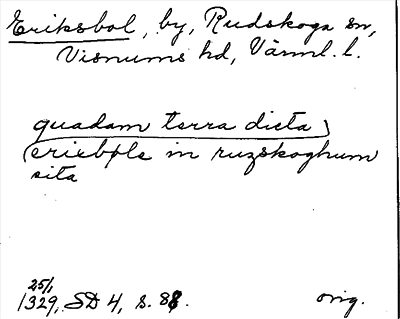 Eriksbol, by, Rudskoga sn,
Visnums hd, Värml. l.
quadam terra dicta)
(ericbole in ruzskoghum
sita
25/1
1329, SD 4, s. 88.
orig.